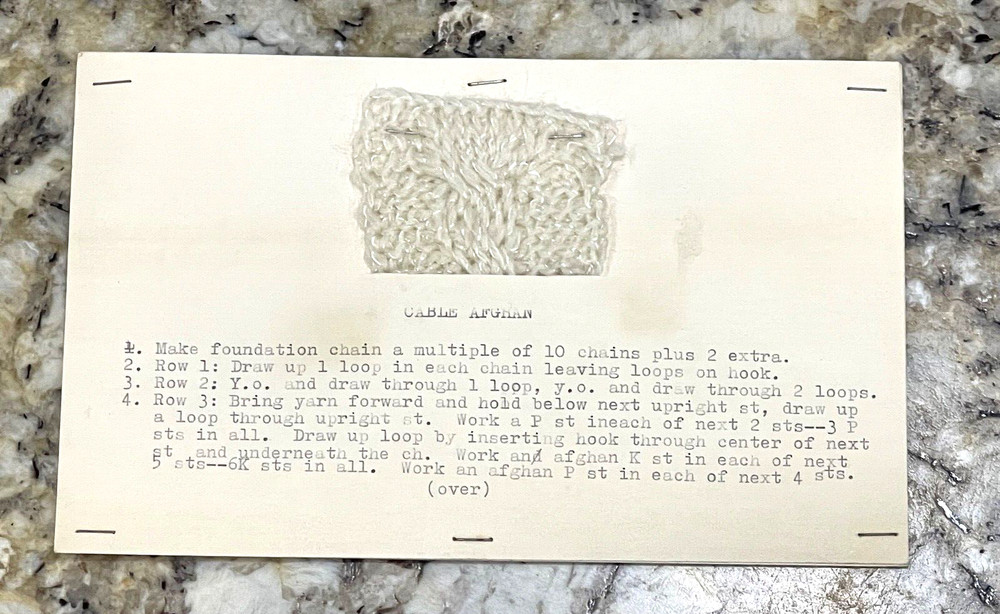 CABLE AFGHAN
1. Make foundation chain a multiple of 10 chains plus 2 extra.
2. Row 1: Draw up 1 loop in each chain leaving loops on hook.
3. Row 2: Y.o. and draw through 1 loop, y.o. and draw through 2 loops.
4. Row 3: Bring yarn forward and hold below next upright st, draw up
a loop through upright st. Work a P st ineach of next 2 sts--3 P
sts in all. Draw up loop by inserting hook through center of next
st and underneath the ch. Work and afghan K st in each of next
5 sts--6K sts in all. Work an afghan P st in each of next 4 sts.
(over)